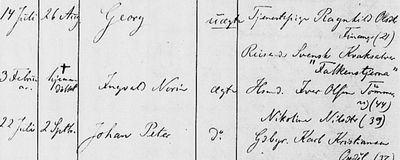 14 Juli 26 Aug Georg uægte Tjenestepige Ragnhild Olsd.
Finanger (21)
Reisende Svensk
"Falkenstjerna"
3 Februar hjemme- Ingvald Norin ægte Hmd. Iver Olsen
ar. døbt (44)
Nikoline Nilsdt (39)
22 Juli 2 Septb. Johan Peter do Gdbgr. Karl Kristiansen